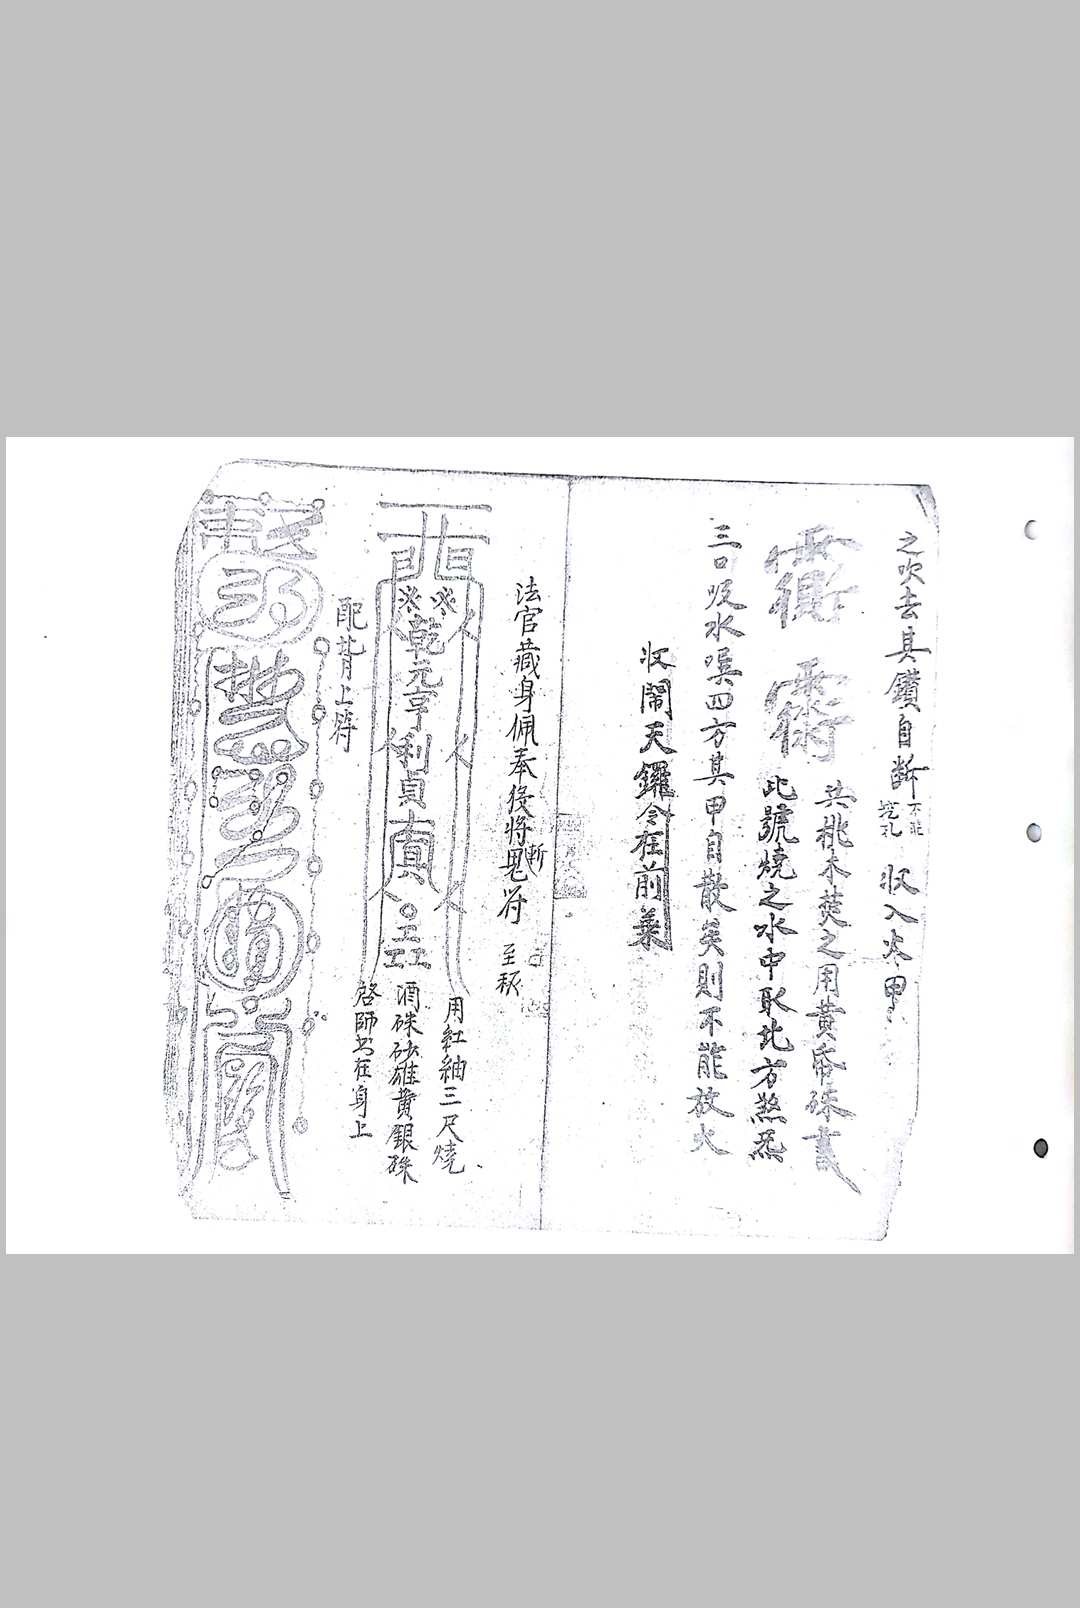 之吹去具鑽自斷
不能
挖孔
收入火甲
共桃木焚之用黃帋硃書
此號燒之水中取北方煞炁
三口吸水噀四方其甲自散矣則不能放火
收鬧天鑼令在前葉
法官藏身佩奉後將鬼符
斬
至
用紅紬三尺燒
酒硃砂雄黃銀硃
啓師在身上
乾元亨利貞
配背上符